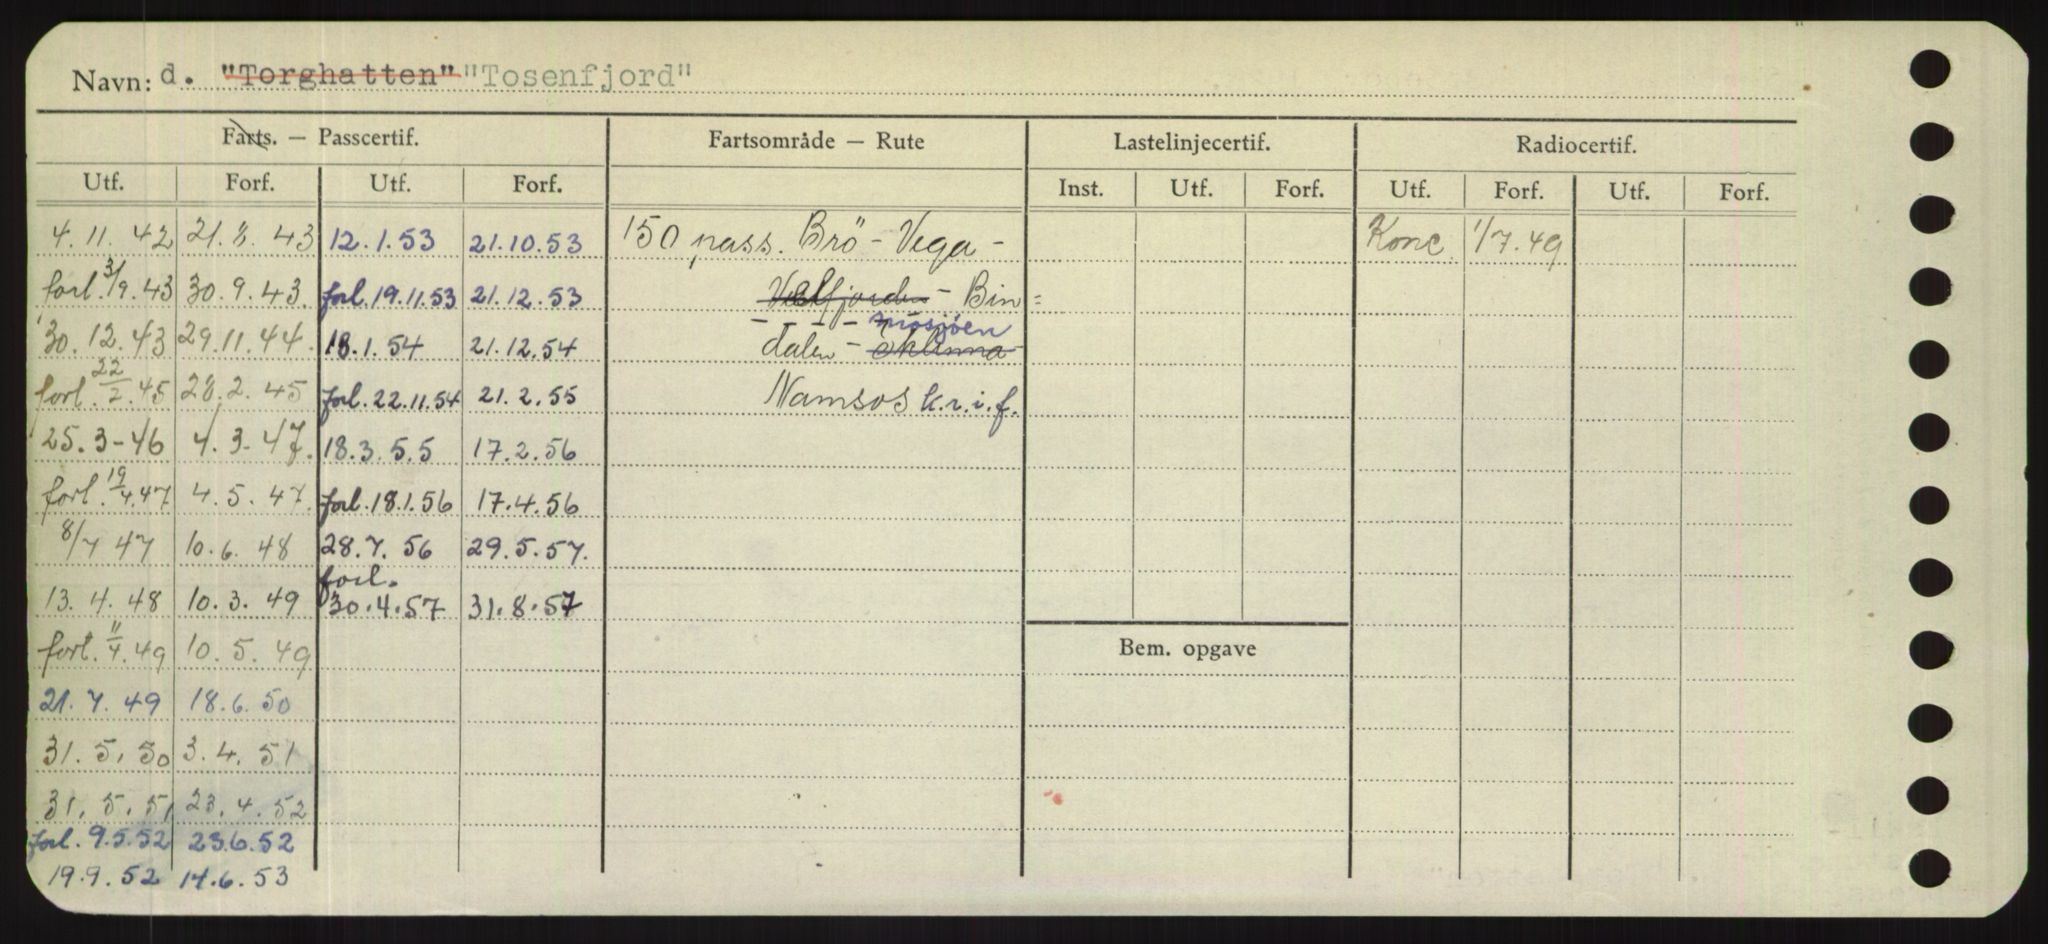 Navn: d. "Torghatten" "Tosenfjord"
Farts. — Passcertif. Fartsområde — Rute Lastelinjecertif. Radiocertif.
Utf. Forf. Utf. Forf. Inst. Utf. Forf. Utf. Forf. Utf. Forf.
4.11.42 21.8.43 12.1.53 21.10.53 150 pass. Brö - Vega - Konc. 1/7.49
forl. 3/9.43 30.9.43 forl. 19.11.53 21.12.53 Velfjorden - Bin=
30.12.43 29.11.44 18.1.54 21.12.54 dalen - Sklinna Mosjöen
forl. 22/2.45 28.2.45 forl. 22.11.54 21.2.55 Namsos k.r.i.f.
25.3-46 4.3-47. 18.3.55 17.2.56
forl. 19/4.47 4.5.47 forl. 18.1.56 17.4.56
8/7 47 10.6.48 28.7.56 29.5.57.
13.4.48 10.3.49 forl. 30.4.57 31.8.57
forl. 11/4.49 10.5.49
Bem. opgave
21.7.49 18.6.50
31.5.50 3.4.51
31.5.51 23.4.52
forl. 9.5.52 23.6.52
19.9.52 14.6.53